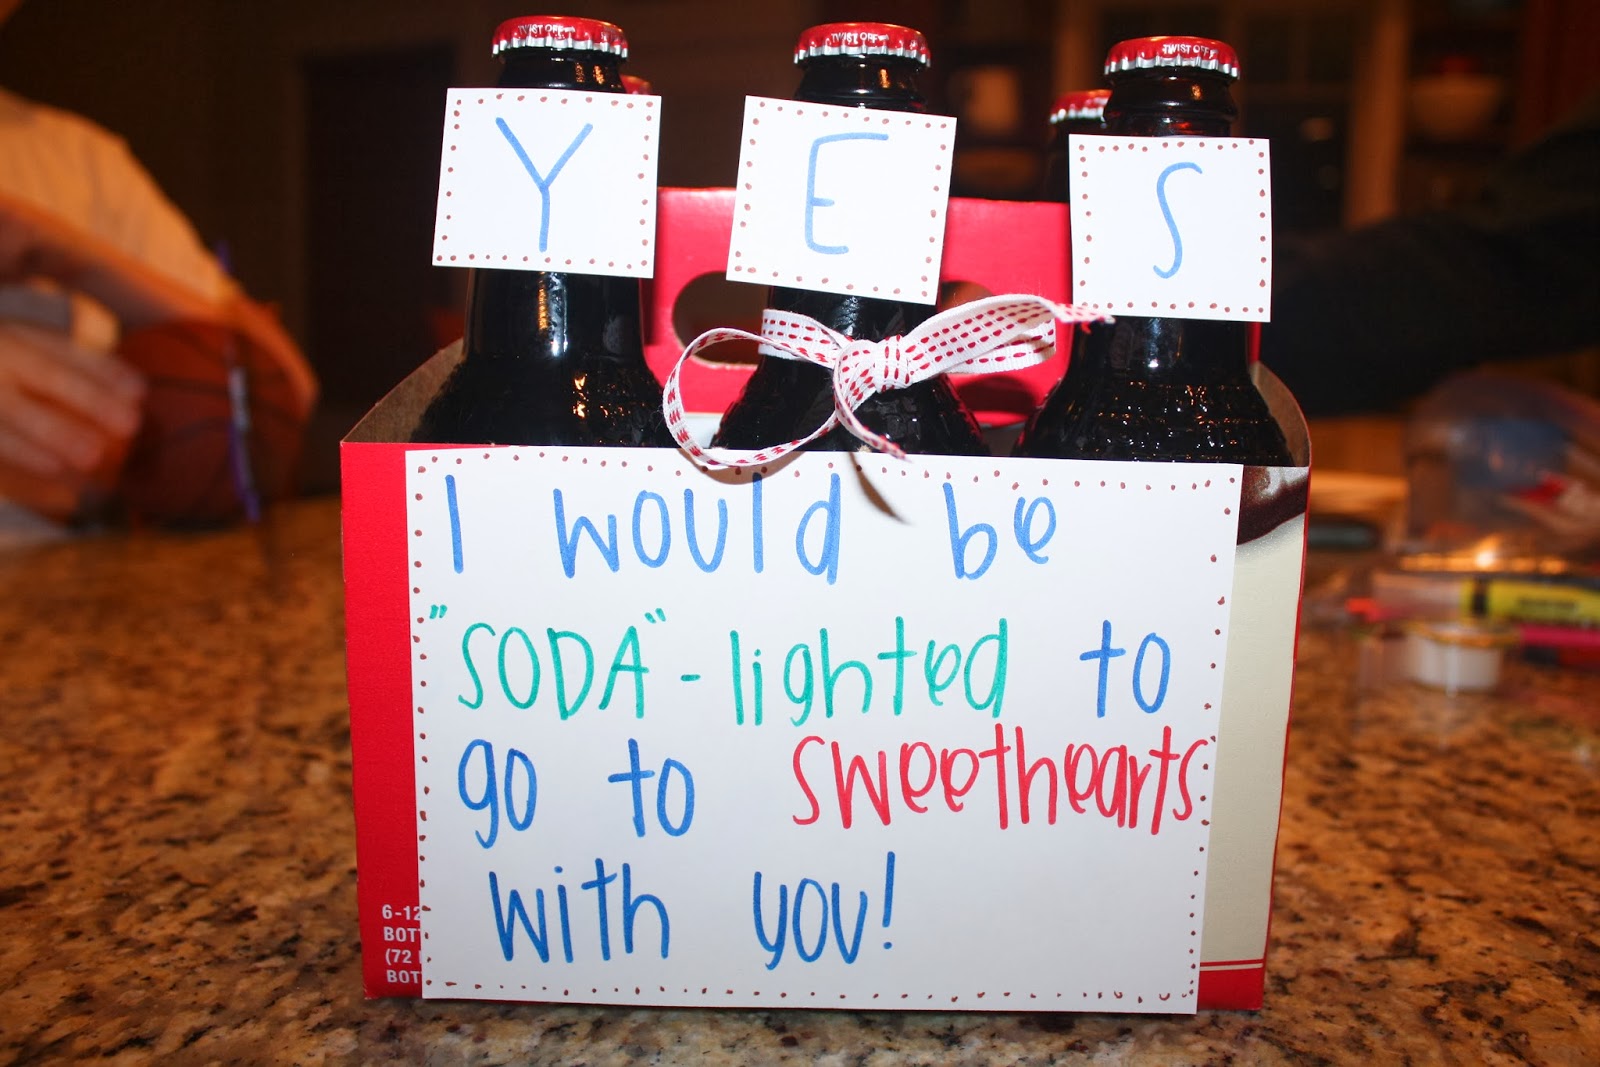 TWIST OFF
TWIST OFF
TWIST OFF
Y E S
I would be
"SODA"-lighted to
go to sweethearts
with you!
6-12
BOTT
(72
BOT